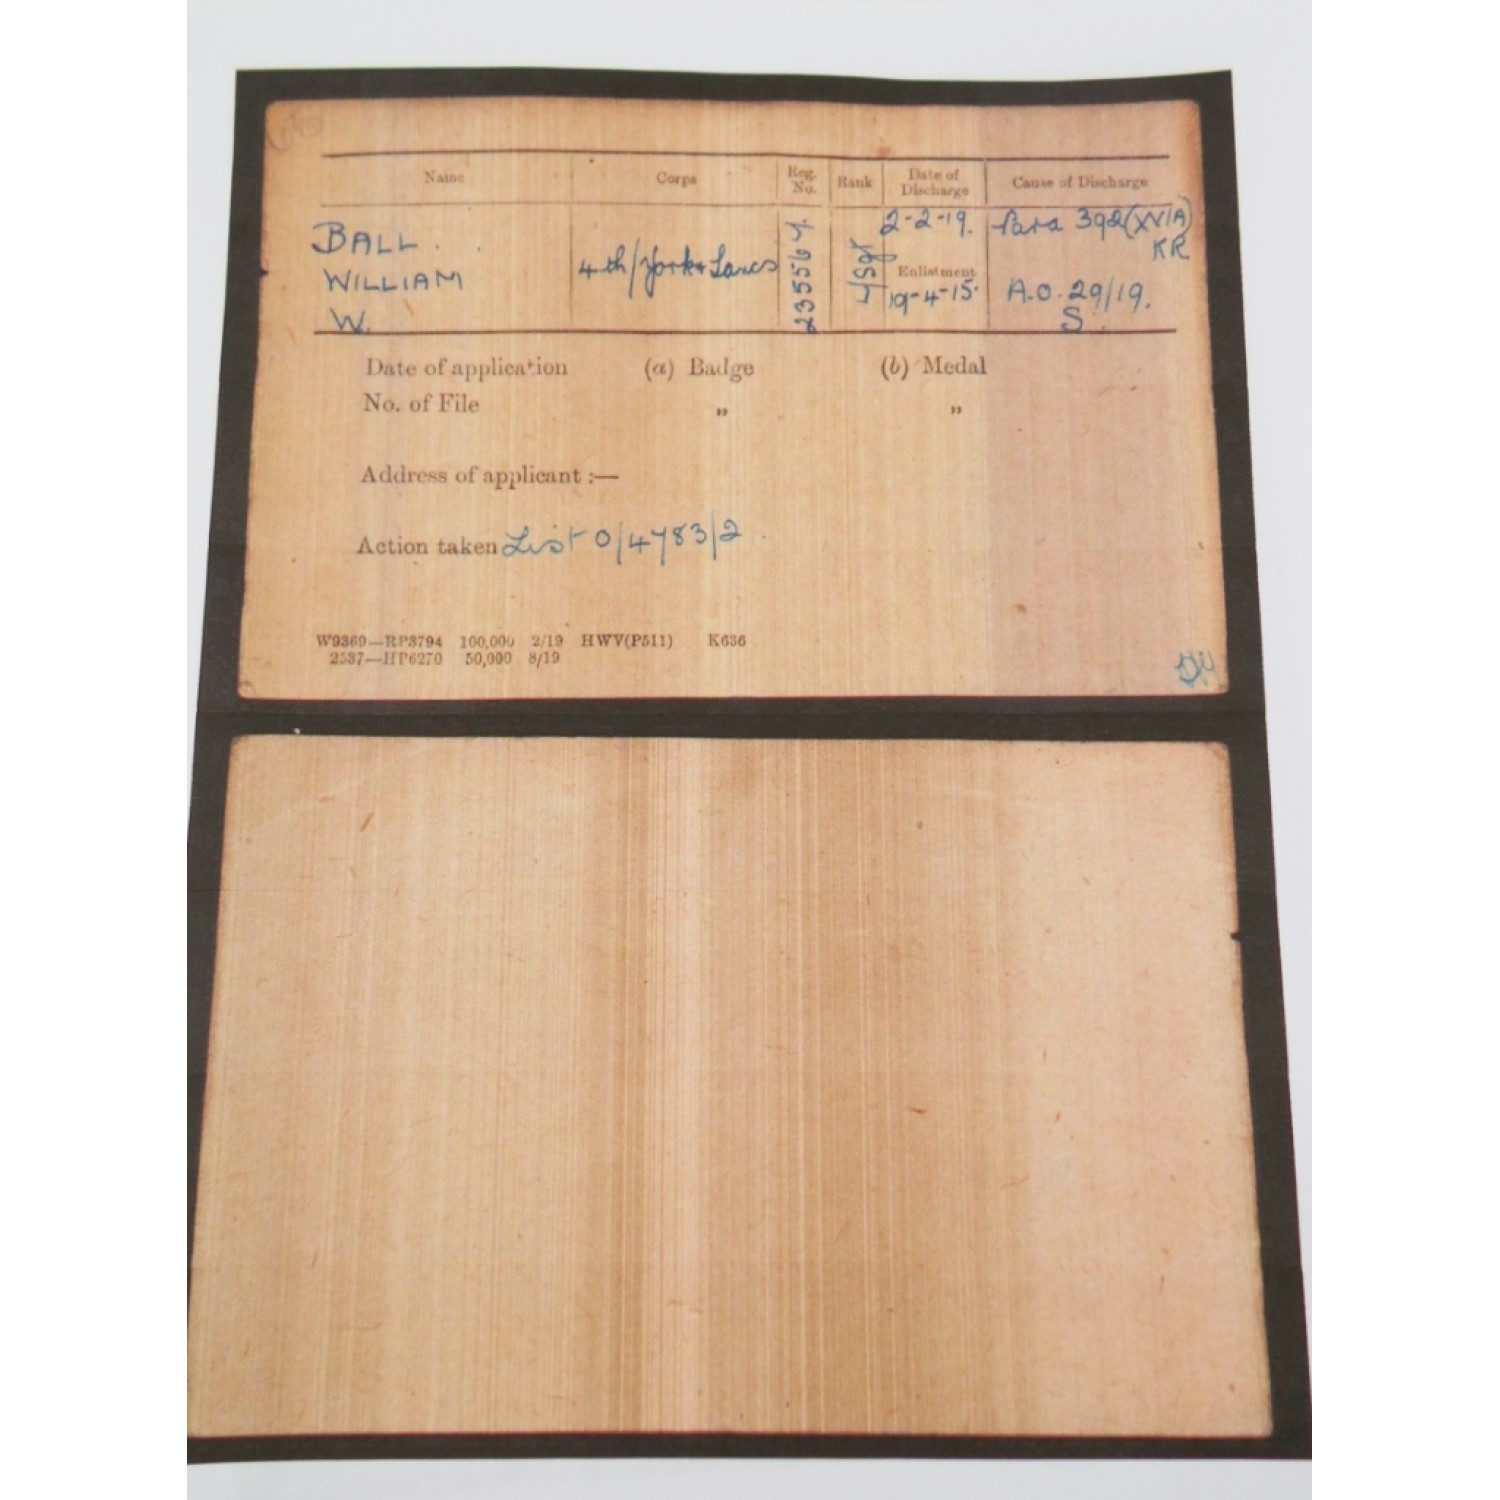 Name Corps Reg. No. Rank Date of Discharge Cause of Discharge
BALL. 2-2-19. Para 392 (XVIA)
WILLIAM 4th/York & Lancs 235567. L/Sgt Enlistment KR
W. 19-4-15. A.O. 29/19.
S.
Date of application (a) Badge (b) Medal
No. of File " "
Address of applicant :—
Action taken List O/4783/2.
W9369—RP3794 100,000 2/19 HWV(P511) K636
2537—HP6270 50,000 8/19